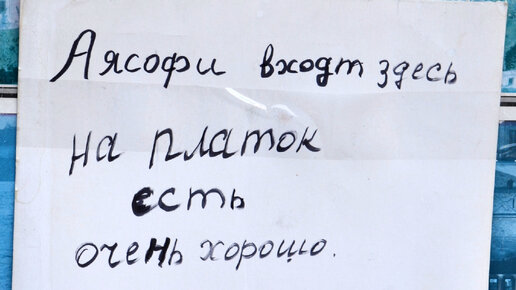 Аясофи входт здесь
на платок
есть
очень хорошо.